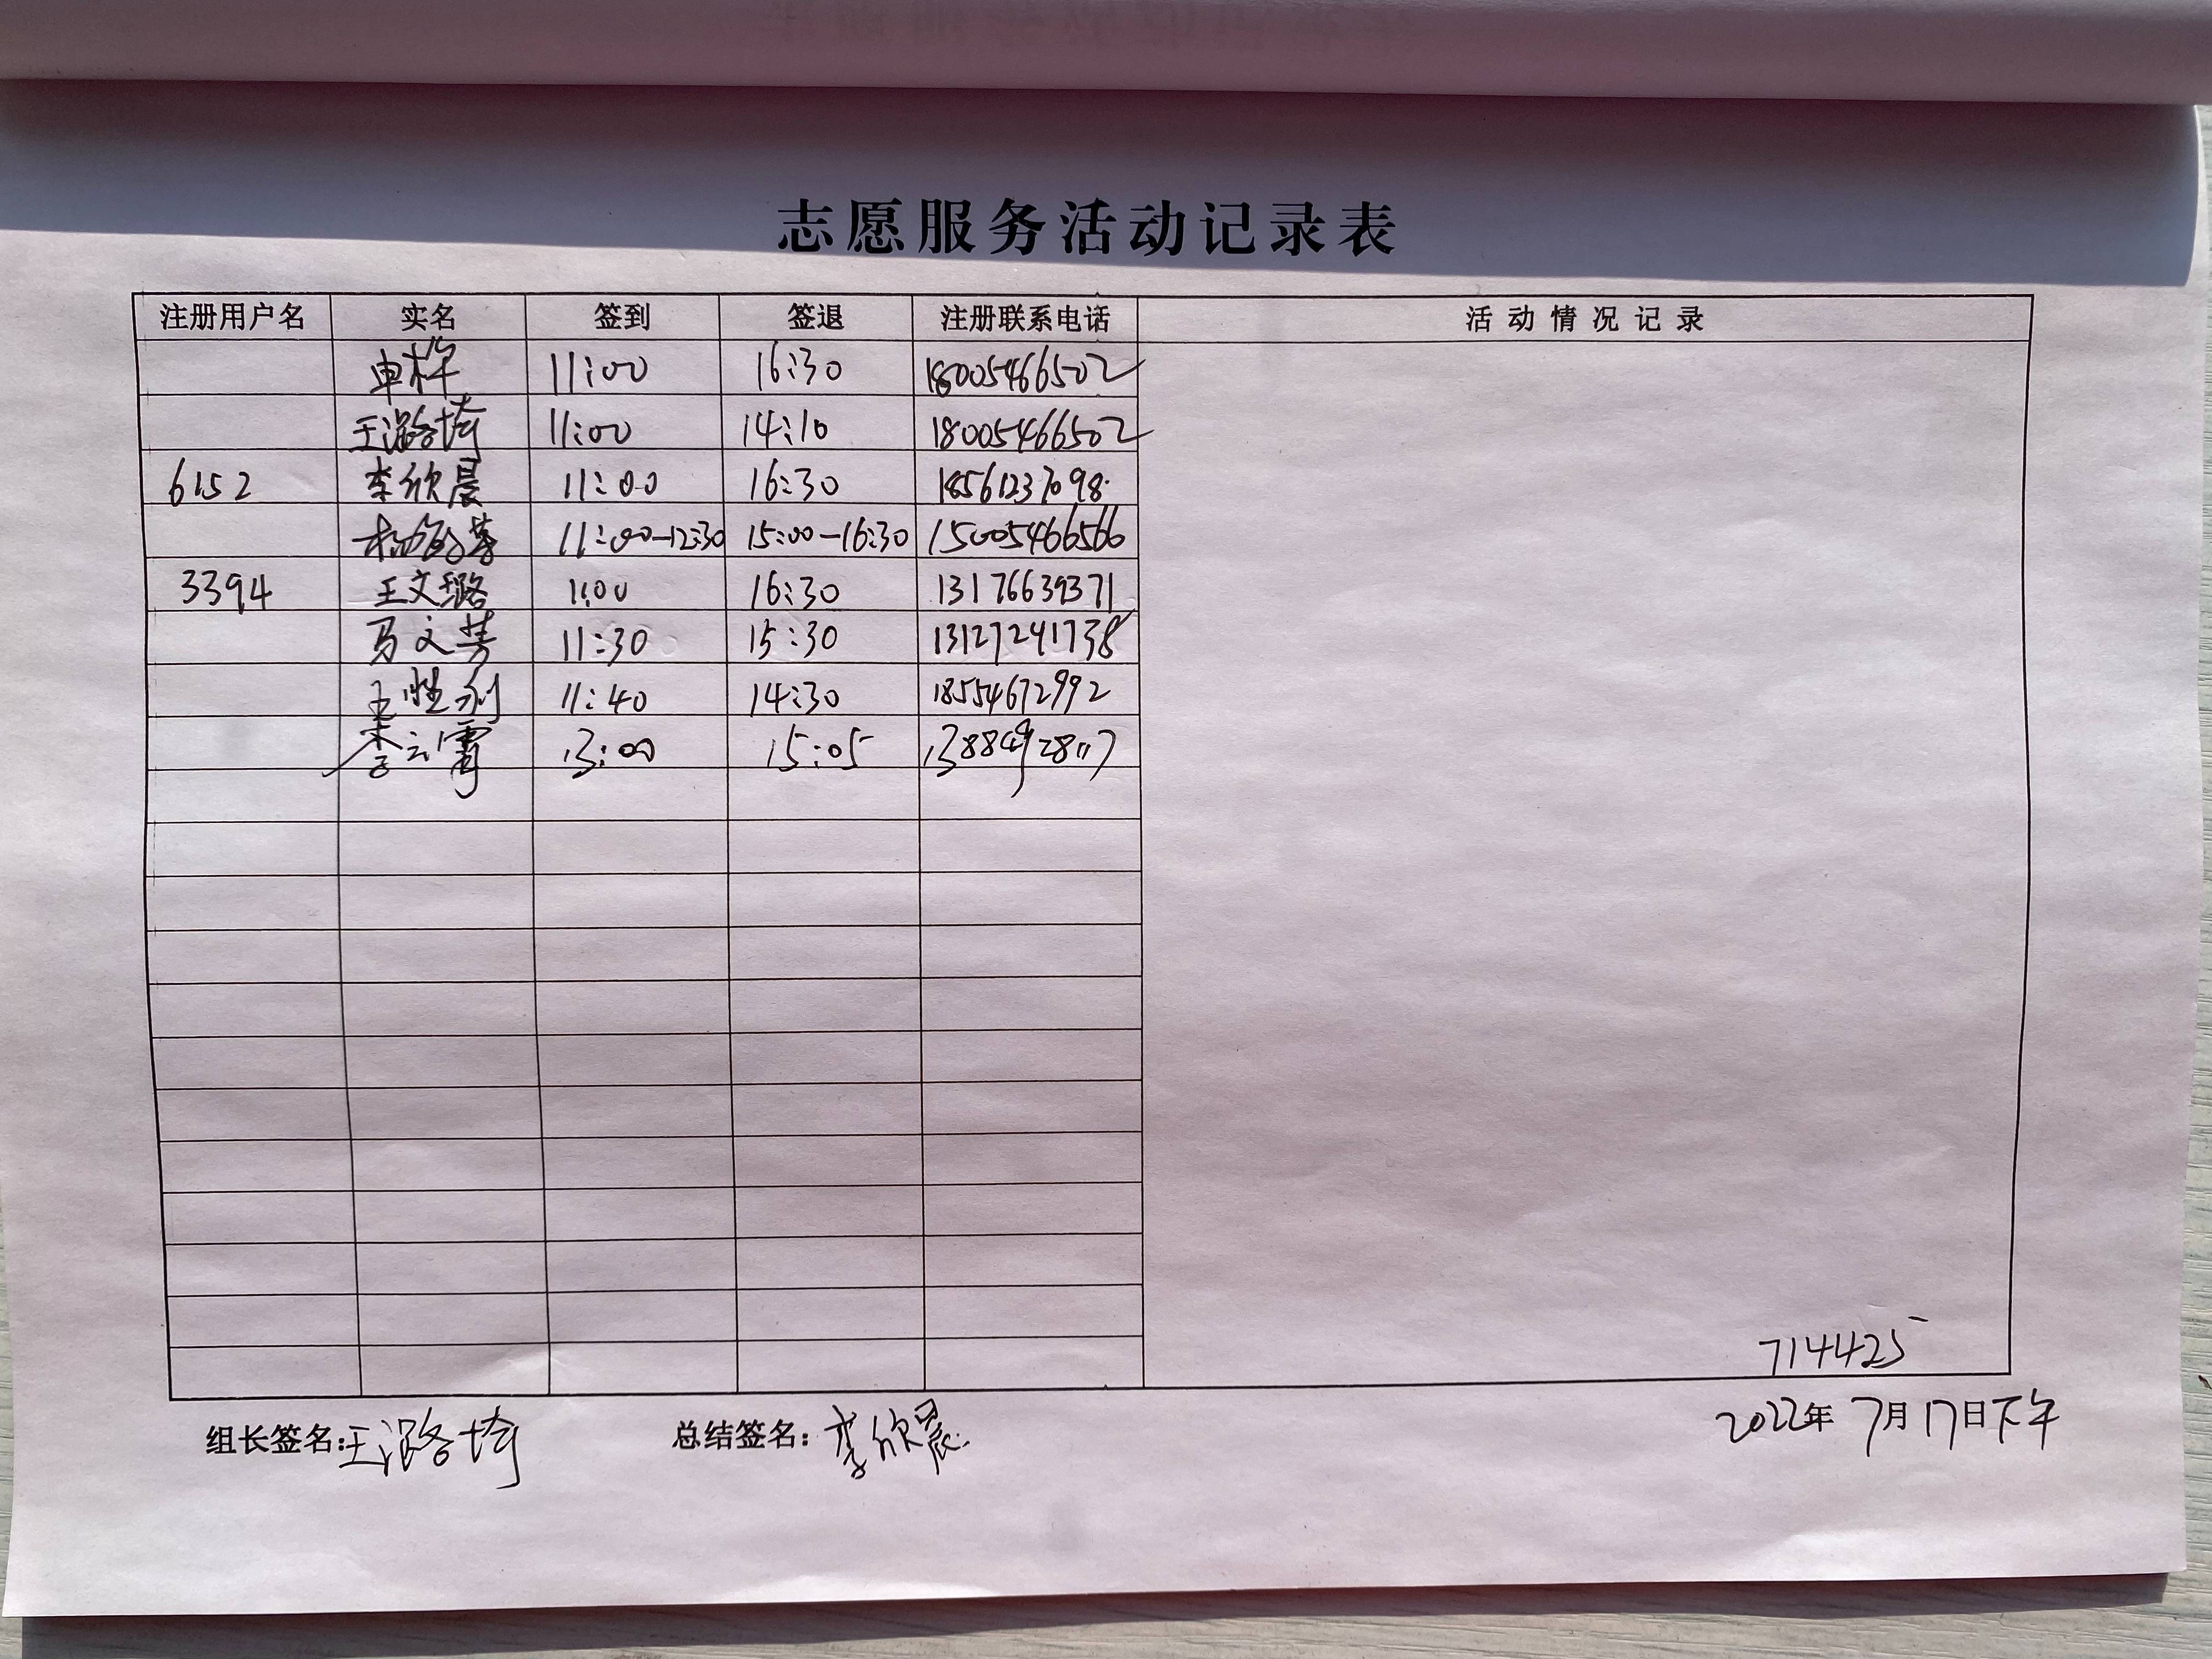 志愿服务活动记录表
注册用户名 实名 签到 签退 注册联系电话 活动情况记录
11:00 16:30 18005466502
王潞埼 11:00 14:10 18005466502
6152 李欣晨 11:00 16:30 18561237098
11:00-12:30 15:00-16:30 15005466566
3394 王文璐 11:00 16:30 13176639371
马文芳 11:30 15:30 13127241738
11:40 14:30 18554672992
李云霄 13:00 15:05
714425
组长签名:王潞埼 总结签名:李欣晨 2022年7月17日下午